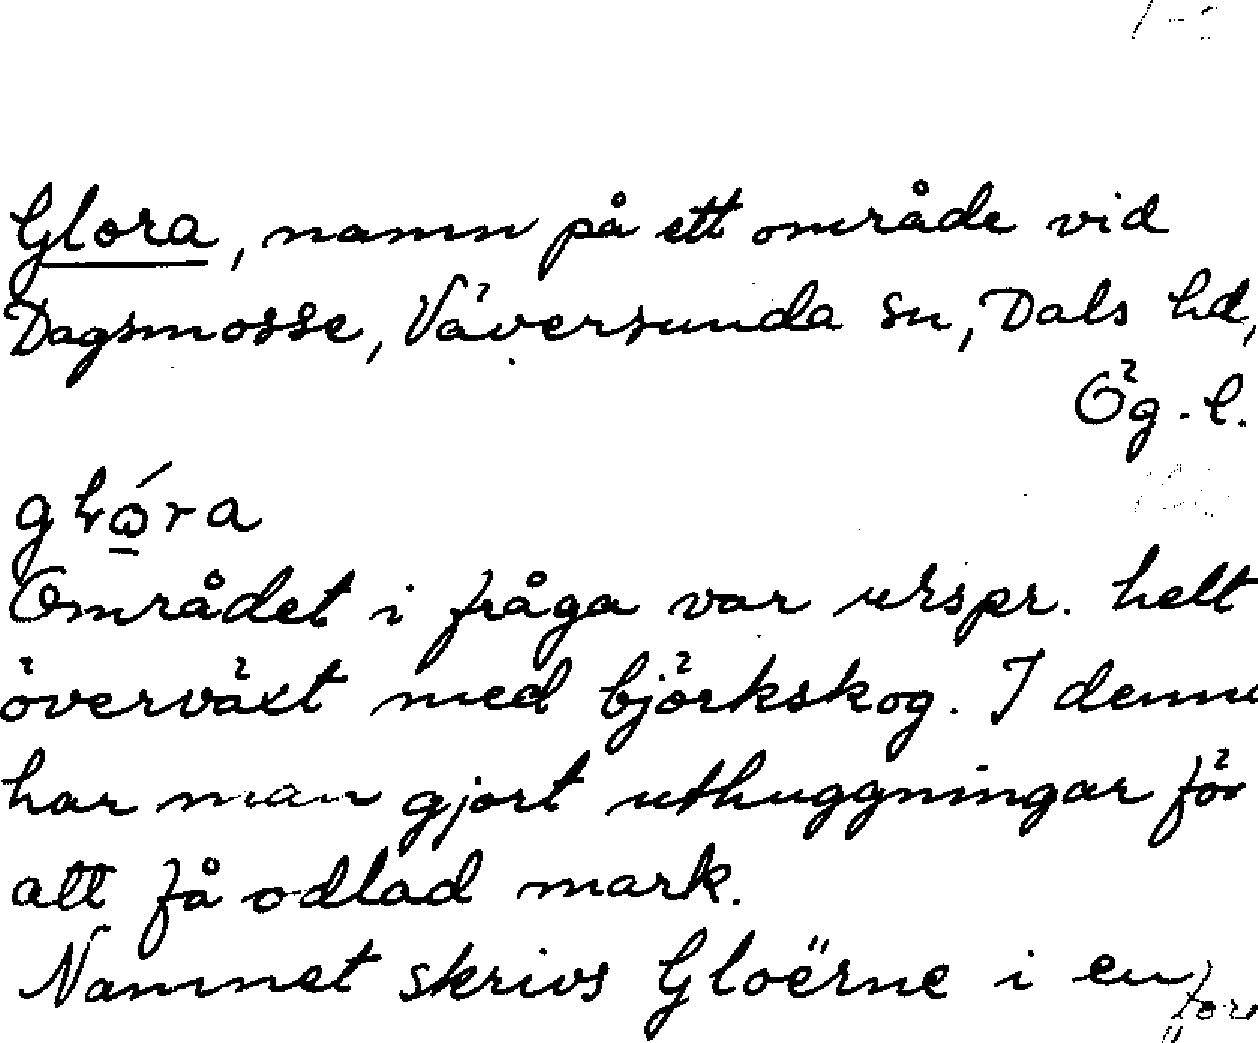 Glora, namn på ett område vid
Dagsmosse, Väversunda sn, Dals hd,
Ög. l.
Området i fråga var urspr. helt
överväxt med björkskog. I denna
har man gjort uthuggningar för
att få odlad mark.
Namnet skrivs Gloërne i en